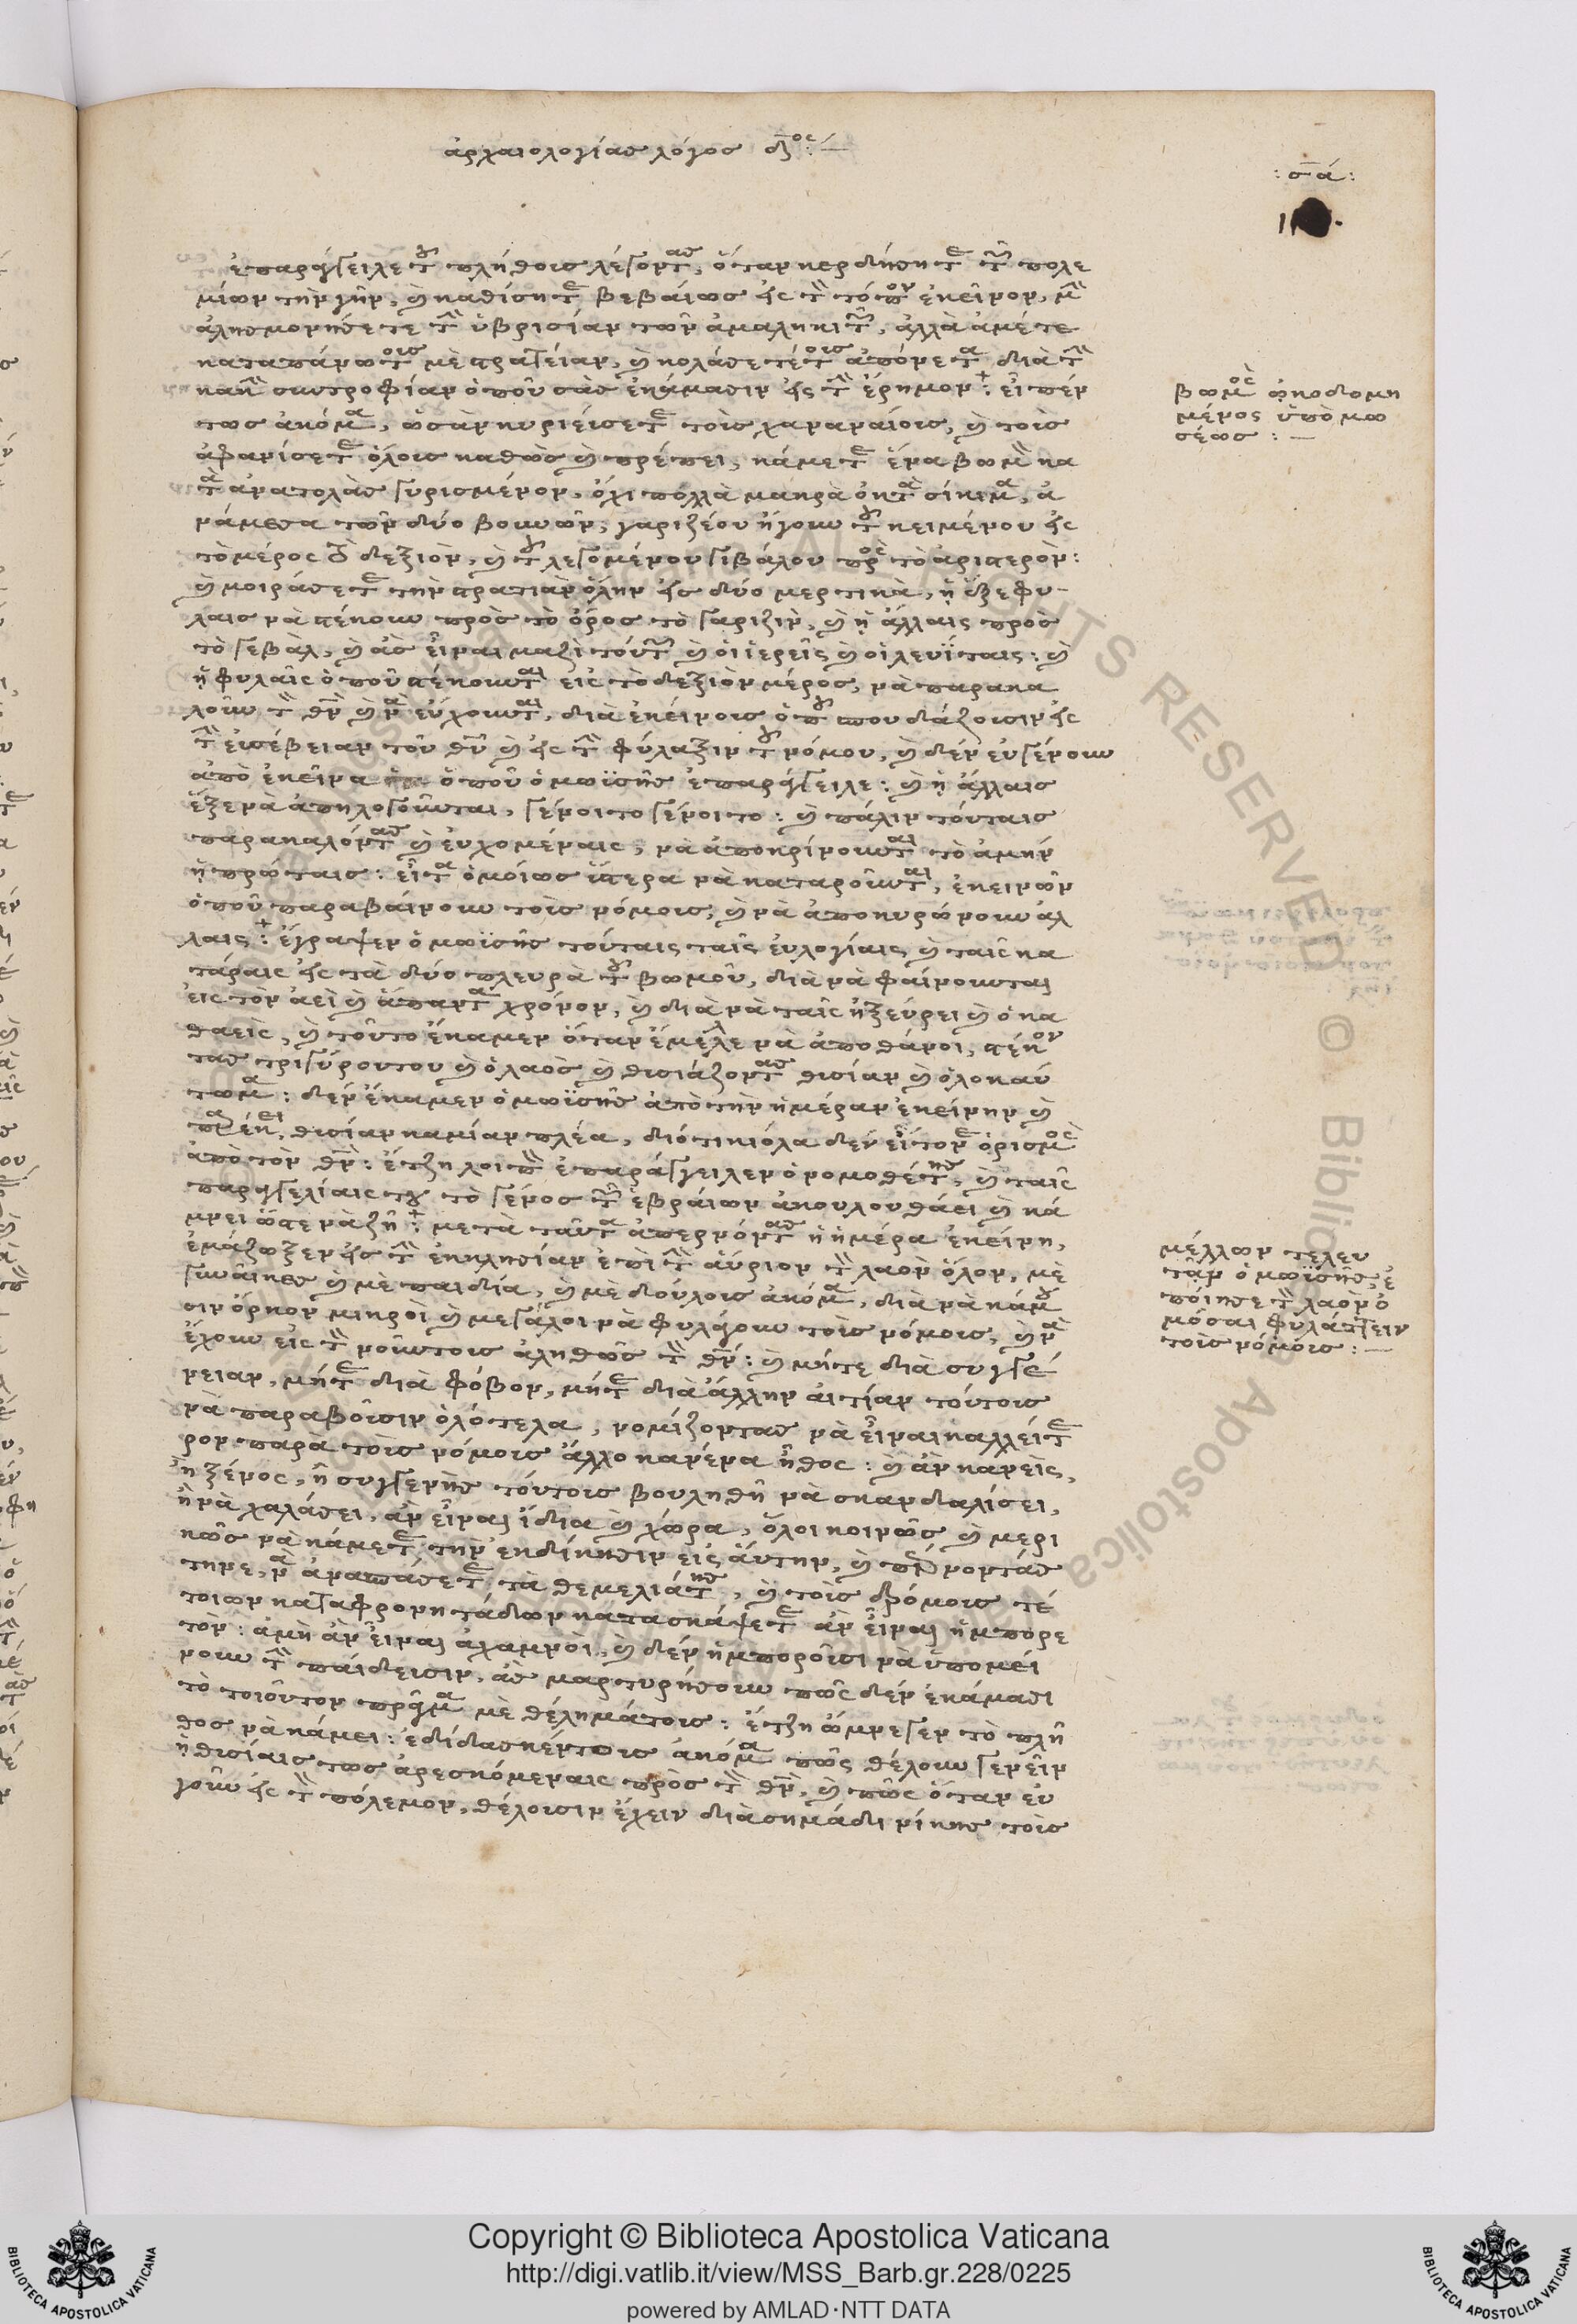 ἀρχαιολογίας λόγος δ^ος :—
: σα :
ἐπαράγγειλε τοῦ πλήθους λέγοντας, ὅταν κερδήσητε τῶν πολε
μίων τὴν γῆν, καὶ καθίσητε βεβαίως εἰς τὸν τόπον ἐκεῖνον, μὴν
ἀλησμονήσετε τὴν ὑβρισίαν τῶν ἀμαληκιτῶν, ἀλλὰ ἀμέτε
κατὰ πάνω τους μὲ στρατείαν, καὶ κολάσετέ τους ἀπόνετα διὰ τὴν
κακὴν συντροφίαν ὁποῦ σᾶς ἐκάμασιν εἰς τὴν ἔρημον : εἶπέν
τως ἀκόμα, ὡσὰν κυριεύσετε τοὺς χαναναίους, καὶ τοὺς
ἀφανίσετε ὅλους καθὼς καὶ πρέπει, κάμετε ἕνα βωμὸν κα
τὰ ἀνατολὰς γυρισμένον, ὄχι πολλὰ μακρὰ ἀ
νάμεσα τῶν δύο βουνῶν, γαριζέου ἤγουν τοῦ κειμένου εἰς
τὸ μέρος τὸ δεξιὸν, καὶ τοῦ λεγομένου γιβάλου πρὸς τὸ ἀριστερὸν :
καὶ μοιράσετε τὴν στρατιὰν ὅλην εἰς δύο μερτικὰ, ἡ ἕξε φυ-
λαις νὰ στέκουν πρὸς τὸ ὄρος τὸ γαριζὶν, καὶ ἡ ἄλλαις πρὸς
τὸ γεβὰλ, καὶ ἂς εἶναι μαζὶ τούτων καὶ οἱ ἱερεῖς καὶ οἱ λευΐταις : καὶ
ἡ φυλαῖς ὁποῦ στέκουνται εἰς τὸ δεξιὸν μέρος, νὰ παρακα
λοῦν τὸν θν καὶ νὰ εὔχουνται, διὰ ἐκείνους ὁποῦ σπουδάζουσιν εἰς
τὴν εὐσέβειαν τοῦ θυ καὶ εἰς τὴν φύλαξιν τοῦ νόμου, καὶ δὲν εὐγένουν
ἀπὸ ἐκεῖνα ὁποῦ ὁ μωϋσῆς ἐπαράγγειλε : καὶ ἡ ἄλλαις
ἕξε νὰ ἀπηλογοῦνται, γένοιτο γένοιτο : καὶ πάλιν τούταις
παρακαλόντας καὶ εὐχομέναις, νὰ ἀποκρίνουνται τὸ ἀμὴν
ἡ πρώταις : εἶτα ὁμοίως ὕστερα νὰ καταροῦνται, ἐκεινῶν
ὁποῦ παραβαίνουν τοὺς νόμους, καὶ νὰ ἀποκυρώνουν ἀλ
λαις : ἔγραψεν ὁ μωϋσῆς τούταις ταῖς εὐλογίαις καὶ ταῖς κα
τάραις εἰς τὰ δύο πλευρὰ τοῦ βωμοῦ, διὰ νὰ φαίνουνται
εἰς τὸν ἀεὶ καὶ ἅπαντα χρόνον, καὶ διὰ νὰ ταῖς ἠξεύρει καὶ ὁ κα
θαεὶς, καὶ τοῦτο ἔκαμεν ὅταν ἔμελλε νὰ ἀποθάνοι, στέκον
τας τριγύρου του καὶ ὁ λαὸς καὶ θισιάζοντας θισίαν καὶ ὁλοκαύ
τωμα : δὲν ἔκαμεν ὁ μωϋσῆς ἀπὸ τὴν ἡμέραν ἐκείνην καὶ
θισίαν καμίαν πλέα, ὁρισμὸς
ἀπὸ τὸν θν : ἔτζη λοιπὸν ἐπαράγγειλεν ὁ νομοθέτης, καὶ ταῖς
παραγγελίαις του τὸ γένος τῶν ἑβραίων ἀκουλουθάει καὶ κά
μνει ὥστε νὰ ζῆ : μετὰ ταῦτα ἀπερνόντας ἡ ἡμέρα ἐκείνη,
ἐμάζωξεν εἰς τὴν ἐκκλησίαν ἐπὶ τὴν αὔριον τὸν λαὸν ὅλον, μὲ
γυναῖκες καὶ μὲ παιδία, καὶ μὲ δούλους ἀκόμα, διὰ νὰ κάμου
σιν ὅρκον μικροὶ καὶ μεγάλοι νὰ φυλάγουν τοὺς νόμους, καὶ νὰ
ἔχουν εἰς τὸν νοῦν τους ἀληθῶς τὸν θν : καὶ μήτε διὰ συγγέ
νειαν, μήτε διὰ φόβον, μήτε διὰ ἄλλην αἰτίαν τούτους
νὰ παραβοῦσιν ὁλότελα, νομίζοντας νὰ εἶναι καλλείτε
ρον παρὰ τοὺς νόμους ἄλλο κανένα ἦθος : καὶ ἂν κανεὶς,
ἢ ξένος, ἢ συγγενὴς τούτους βουληθῆ νὰ σκανδαλίσει,
ἢ νὰ χαλάσει, ἂν εἶναι ἴδια καὶ χώρα, ὅλοι κοινῶς καὶ μερι
κῶς νὰ κάμετε τὴν ἐκδίκησιν εἰς αὐτην, καὶ
νὰ ἀνασπάσετε τὰ θεμέλιά της, καὶ τοὺς δρόμους τέ
τοιων καταφρονητάδων κατασκάψετε ἂν εἶναι ἠμπορε
τόν : ἀμὴ ἂν εἶναι ἀχαμνοὶ, καὶ δὲν ἠμποροῦσι νὰ ὑπομεί
νουν τὴν παίδευσιν, ἂς μαρτυρήσουν πῶς δὲν ἐκάμασι
τὸ τοιοῦτον πρᾶγμα μὲ θέλημά τους : ἔτζη ὤμνεγεν τὸ πλῆ
θος νὰ κάμει : ἐδίδασκέν τους ἀκόμα πῶς θέλουν γενεῖν
ἡ θισίαις τως ἀρεσκόμεναις πρὸς τὸν θν, καὶ πῶς ὅταν εὐ
γοῦν εἰς τὸν πόλεμον, θέλουσιν ἔχειν διὰ σημάδι νίκης τοὺς
βωμὸς ᾠκοδομη
μένος ὑπὸ μω
σέως : —
μέλλων τελευ
τᾶν ὁ μωϋσῆς, ἐ
ποίησε τὸν λαὸν ὀ
μόσαι φυλάττειν
τοὺς νόμους : —
Copyright © Biblioteca Apostolica Vaticana
http://digi.vatlib.it/view/MSS_Barb.gr.228/0225
powered by AMLAD·NTT DATA
BIBLIOTECA APOSTOLICA VATICANA
BIBLIOTECA APOSTOLICA VATICANA